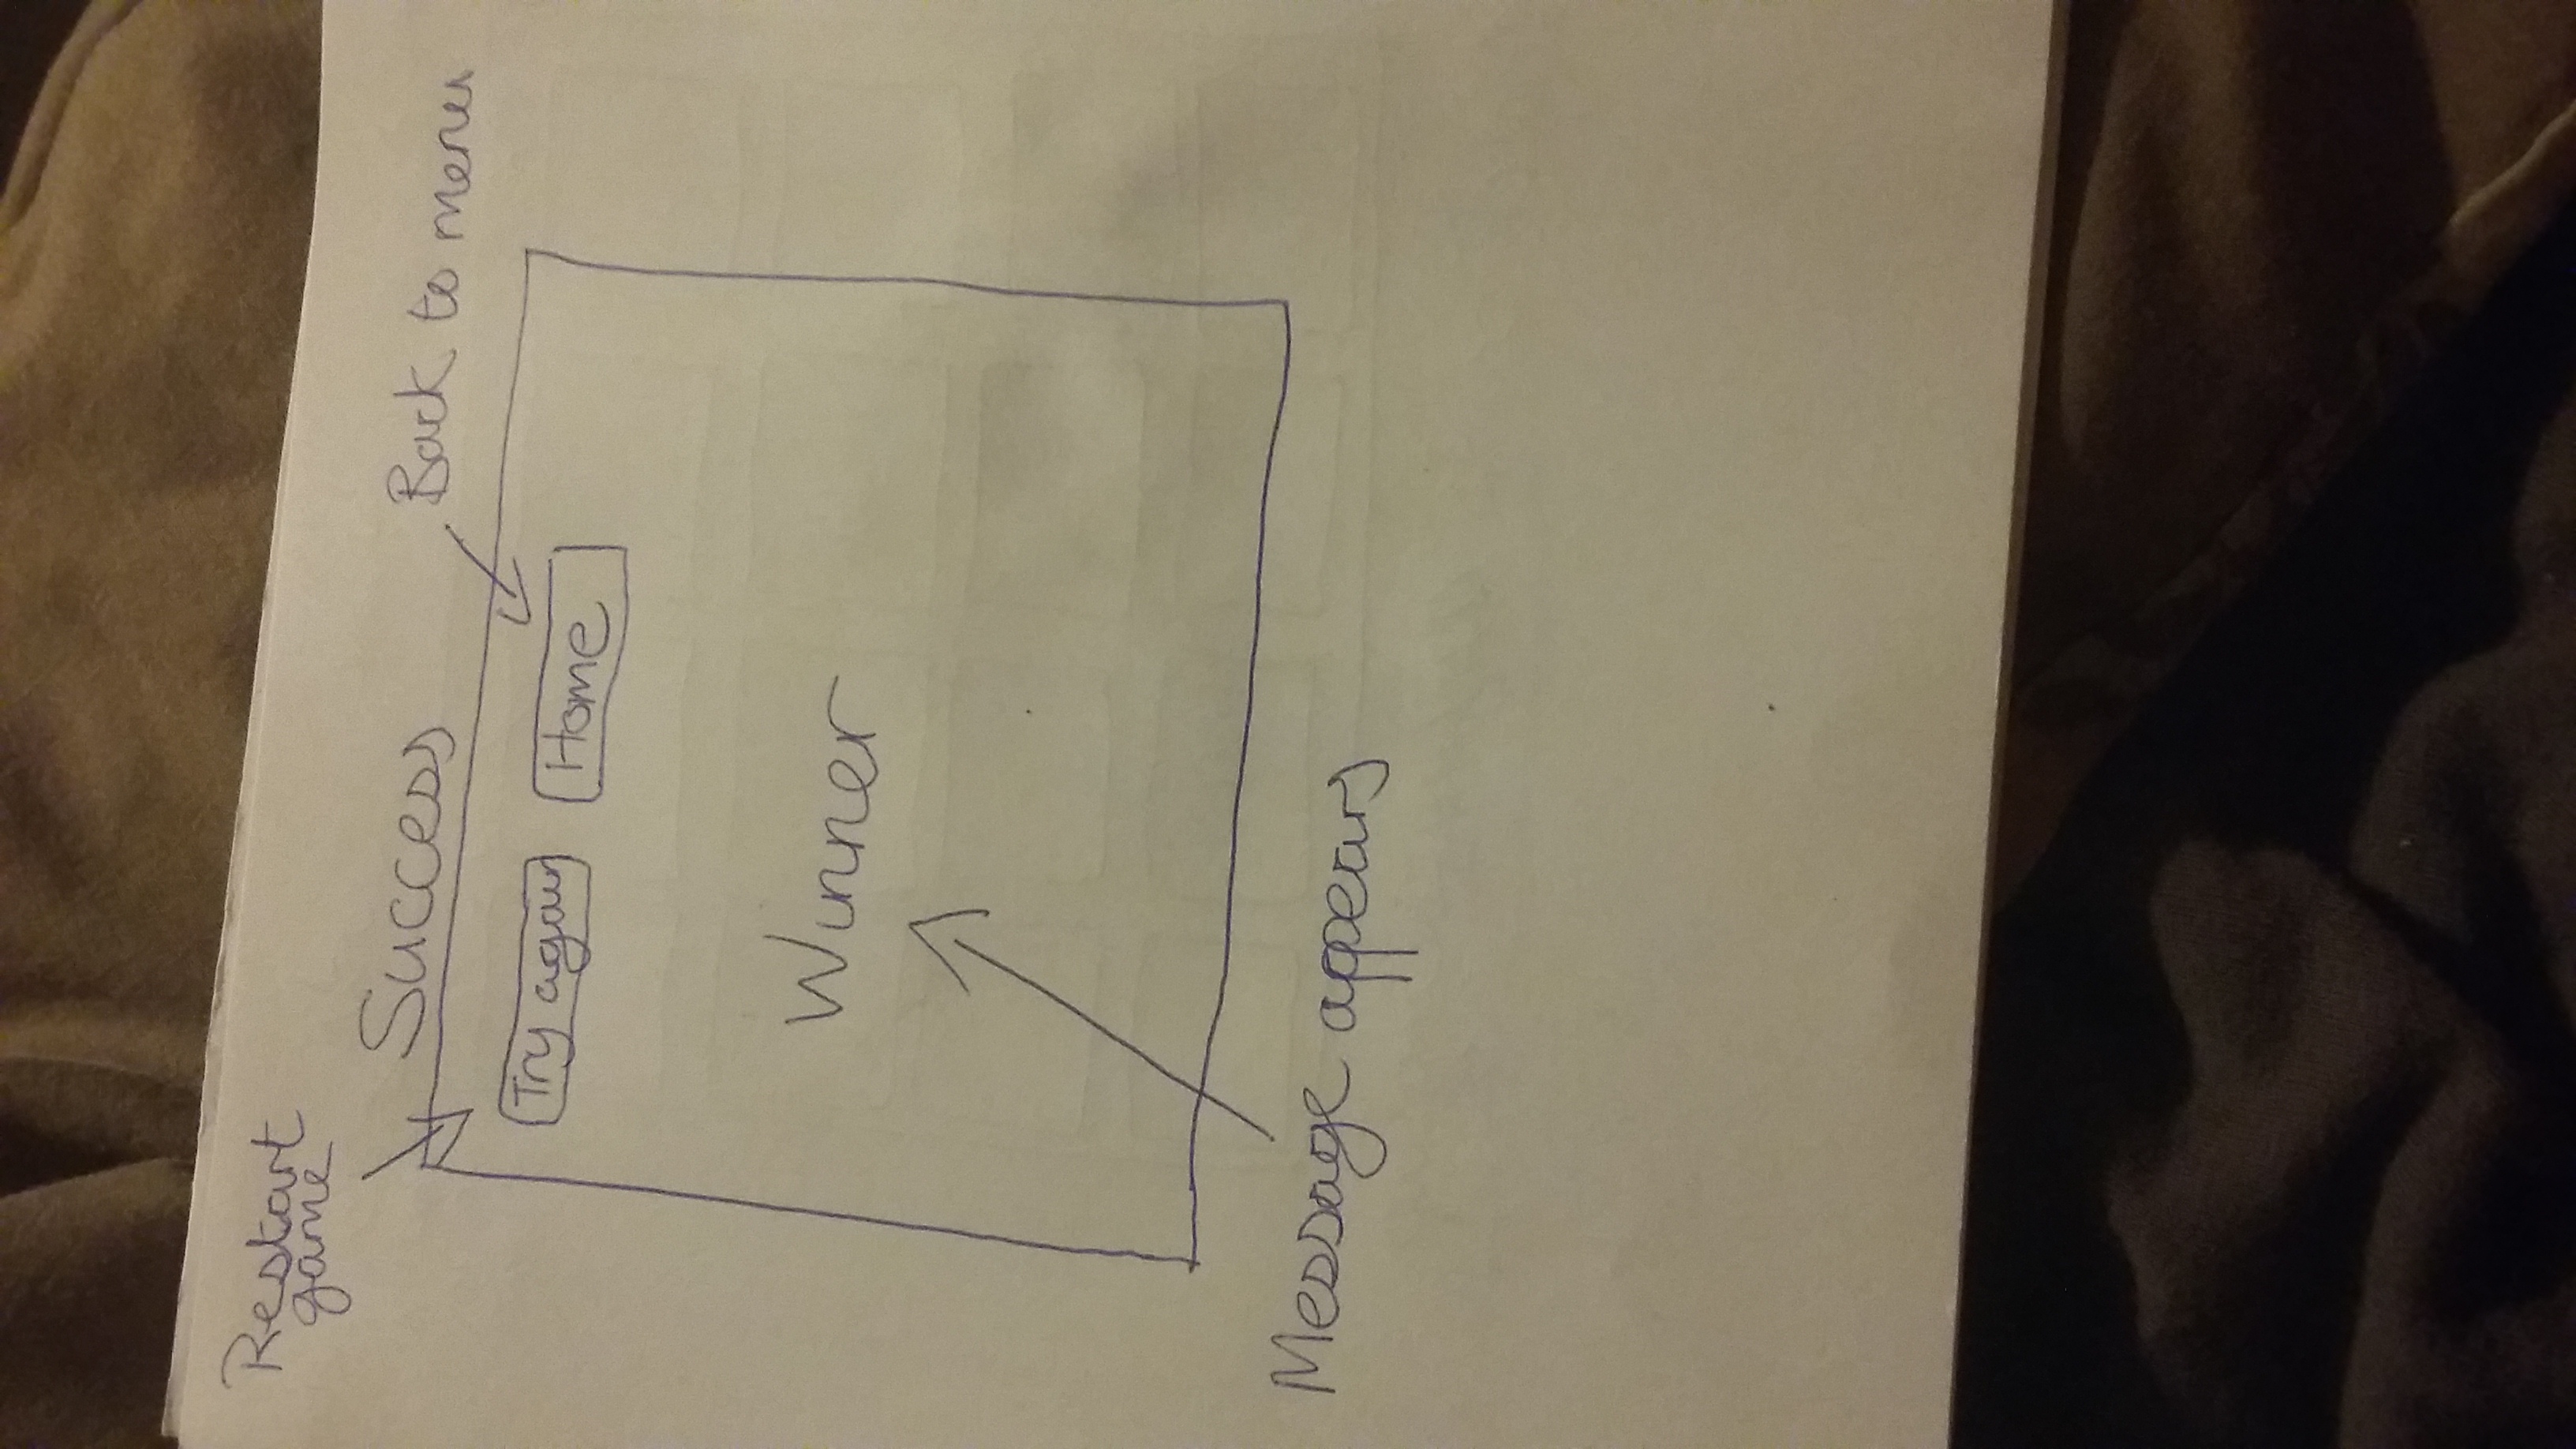 Restart
game
Success
Back to menu
Try again
Home
Winner
Message appears